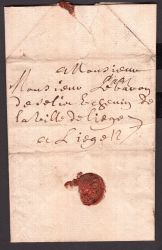 a Monsieur
Monsieur Le baron
de Selis Echevin de
la Ville de Liege
a Liege